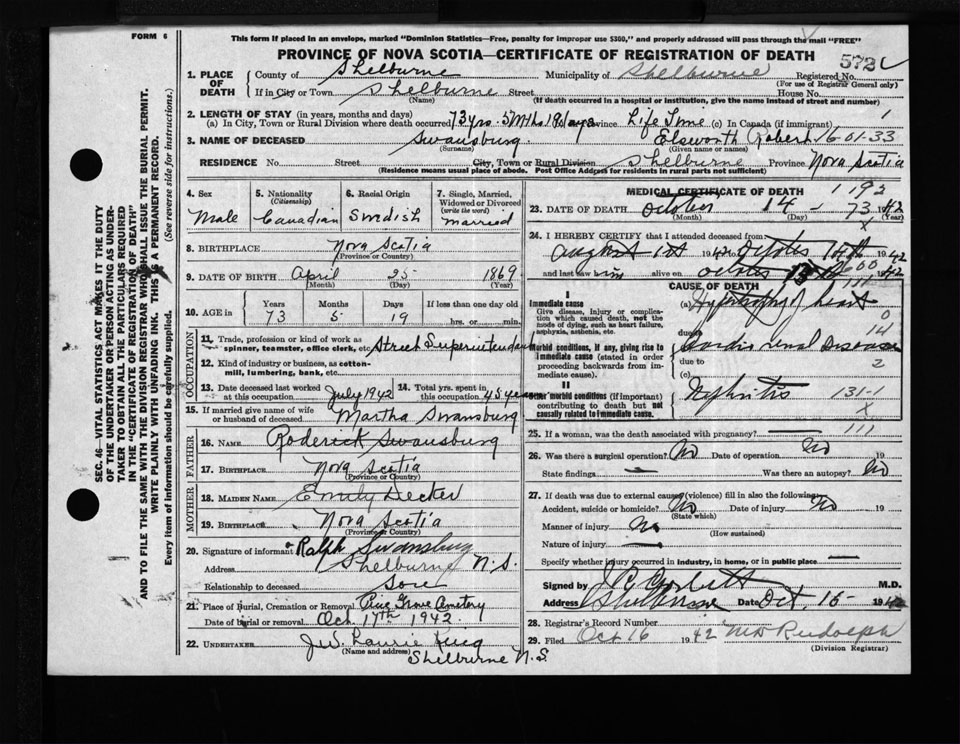 FORM 6
This form if placed in an envelope, marked "Dominion Statistics—Free, penalty for improper use $300," and properly addressed will pass through the mail "FREE"
PROVINCE OF NOVA SCOTIA—CERTIFICATE OF REGISTRATION OF DEATH
572
1. PLACE OF DEATH
County of Shelburne Municipality of Shelburne Registered No.
(For use of Registrar General only)
If in City or Town Shelburne Street House No.
(Name) (If death occurred in a hospital or institution, give the name instead of street and number)
2. LENGTH OF STAY (in years, months and days)
(a) In City, Town or Rural Division where death occurred 73 yrs. 5 Mths 19 days Province Life Time (c) In Canada (if immigrant) 1
3. NAME OF DECEASED Swansburg Elsworth Robert 16-01-33
(Surname) (Given name or names)
RESIDENCE No. Street City, Town or Rural Division Shelburne Province Nova Scotia
(Residence means usual place of abode. Post Office Address for residents in rural parts not sufficient)
4. Sex
Male
5. Nationality
(Citizenship)
Canadian
6. Racial Origin
Swedish
7. Single, Married, Widowed or Divorced
(write the word)
married
8. BIRTHPLACE Nova Scotia
(Province or Country)
9. DATE OF BIRTH April 25 1869
(Month) (Day) (Year)
10. AGE in
Years Months Days If less than one day old
73 5 19 hrs. or min.
OCCUPATION
11. Trade, profession or kind of work as spinner, teamster, office clerk, etc. Street Superintendant
12. Kind of industry or business, as cotton-mill, lumbering, bank, etc.
13. Date deceased last worked at this occupation July 1942
14. Total yrs. spent in this occupation 45 years
15. If married give name of wife or husband of deceased Martha Swansburg
FATHER
16. NAME Roderick Swansburg
17. BIRTHPLACE Nova Scotia
(Province or Country)
MOTHER
18. MAIDEN NAME Emily Decker
19. BIRTHPLACE Nova Scotia
(Province or Country)
20. Signature of informant Ralph Swansburg
Address Shelburne N.S.
Relationship to deceased Son
21. Place of Burial, Cremation or Removal Pine Grove Cemetery
Date of burial or removal Oct 17th 1942
22. UNDERTAKER J.W. Laurie King
(Name and address) Shelburne N.S.
MEDICAL CERTIFICATE OF DEATH
23. DATE OF DEATH October 14 - 73 1942
(Month) (Day) (Year)
24. I HEREBY CERTIFY that I attended deceased from
August 1st 1942 to October 14th 1942
and last saw him alive on October 13 1942
CAUSE OF DEATH
I
Immediate cause
Give disease, injury or complication which caused death, not the mode of dying, such as heart failure, asphyxia, asthenia, etc.
(a) Hypertrophy of heart
due to
Morbid conditions, if any, giving rise to immediate cause (stated in order proceeding backwards from immediate cause).
Cardio renal Disease
due to
(c)
II
Other morbid conditions (if important) contributing to death but not causally related to immediate cause.
Nephritis 131-1
111
25. If a woman, was the death associated with pregnancy?
26. Was there a surgical operation? No Date of operation No 19
State findings Was there an autopsy? No
27. If death was due to external causes (violence) fill in also the following:
Accident, suicide or homicide? No Date of injury No 19
(State which)
Manner of injury No
(How sustained)
Nature of injury
Specify whether injury occurred in industry, in home, or in public place
Signed by M.D.
Address Shelburne Date Oct. 15 1942
28. Registrar's Record Number
29. Filed Oct 16 1942 Rudolph
(Division Registrar)
SEC. 46—VITAL STATISTICS ACT MAKES IT THE DUTY OF THE UNDERTAKER OR PERSON ACTING AS UNDERTAKER TO OBTAIN ALL THE PARTICULARS REQUIRED IN THE "CERTIFICATE OF REGISTRATION OF DEATH" AND TO FILE THE SAME WITH THE DIVISION REGISTRAR WHO SHALL ISSUE THE BURIAL PERMIT.
WRITE PLAINLY WITH UNFADING INK. THIS IS A PERMANENT RECORD.
Every item of information should be carefully supplied. (See reverse side for instructions.)